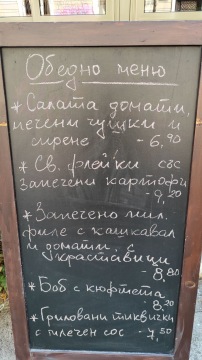 Обедно меню
* Салата домати,
печени чушки и
сирене - 6,90
* Св. флейки със
запечени картофи
- 9,20
* Запечено пил.
филе с кашкавал
и домати, с
краставици
- 8,80
* Боб с кюфтета
8,20
* Гриловани тиквички
с млечен сос - 7,50